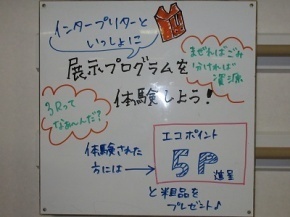 インタープリターと
いっしょに
展示プログラムを
体験しよう!
まぜればごみ
分ければ
資源
3Rって
なぁ〜んだ?
体験された
方には→
エコポイント
5P
進呈
と粗品を
プレゼント♪